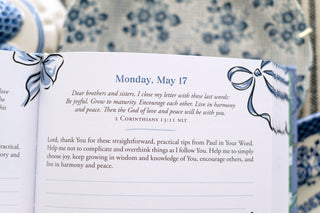 Monday, May 17
Dear brothers and sisters, I close my letter with these last words:
Be joyful. Grow to maturity. Encourage each other. Live in harmony
and peace. Then the God of love and peace will be with you.
2 CORINTHIANS 13:11 NLT
Lord, thank You for these straightforward, practical tips from Paul in Your Word.
Help me not to complicate and overthink things as I follow You. Help me to simply
choose joy, keep growing in wisdom and knowledge of You, encourage others, and
live in harmony and peace.